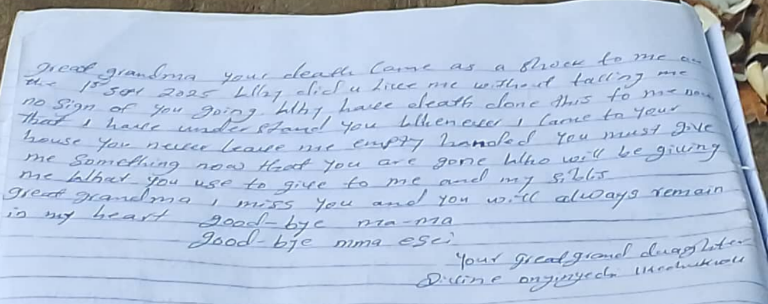 great grandma your death came as a shock to me on
the 1st Sept 2025 Why did u live me without talling me
no sign of you going. Why have death done this to me now
that I have understand you Whenever I came to your
house you never leave me empty handed You must give
me something now that you are gone Who will be giving
me What you use to give to me and my sibls
great grandma I miss you and you will always remain
in my heart good-bye ma-ma
good-bye mma esei
Your great grand duaghter
Divine